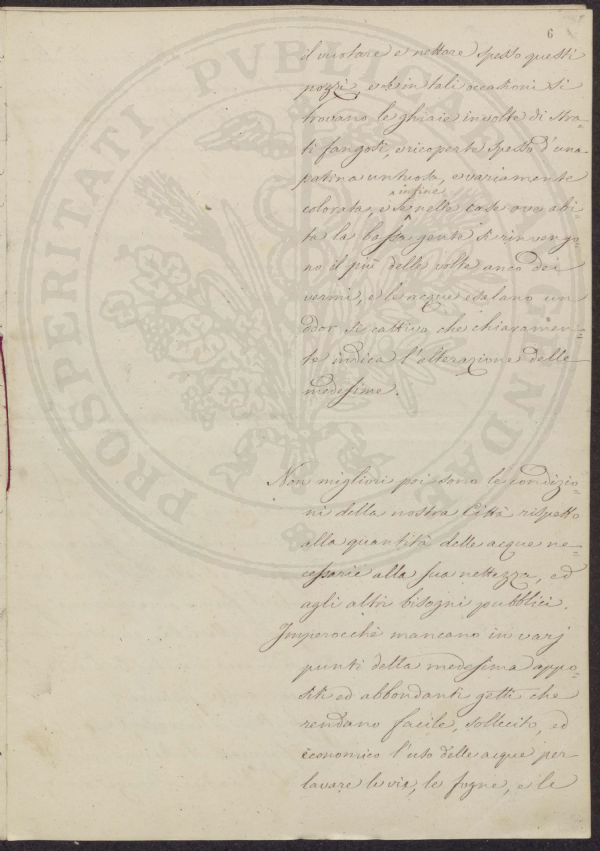 6
il vuotare e nettare spesso questi
pozzi, e se in tali occasioni si
trovano le ghiaie involte di stra=
ti fangosi, e ricoperte spesso d'una
patina untuosa, e variamente
infine
colorata, e se nelle case ove abi
ta la bassa gente si rinvengo=
no il più delle volte anco dei
vermi, e le acque esalano un
odor sì cattivo, che chiaramen=
te indica l'alterazione delle
medesime.
Non migliori poi sono le condizio=
ni della nostra Città rispetto
alla quantità delle acque ne=
cessarie alla sua nettezza, ed
agli altri bisogni pubblici.
Imperocchè mancano in varj
punti della medesima appo=
siti ed abbondanti getti che
rendano facile, sollecito, ed
economico l'uso delle acque per
lavare le vie, le fogne, e le
PROSPERITATI PVBLICAE AVGENDAE